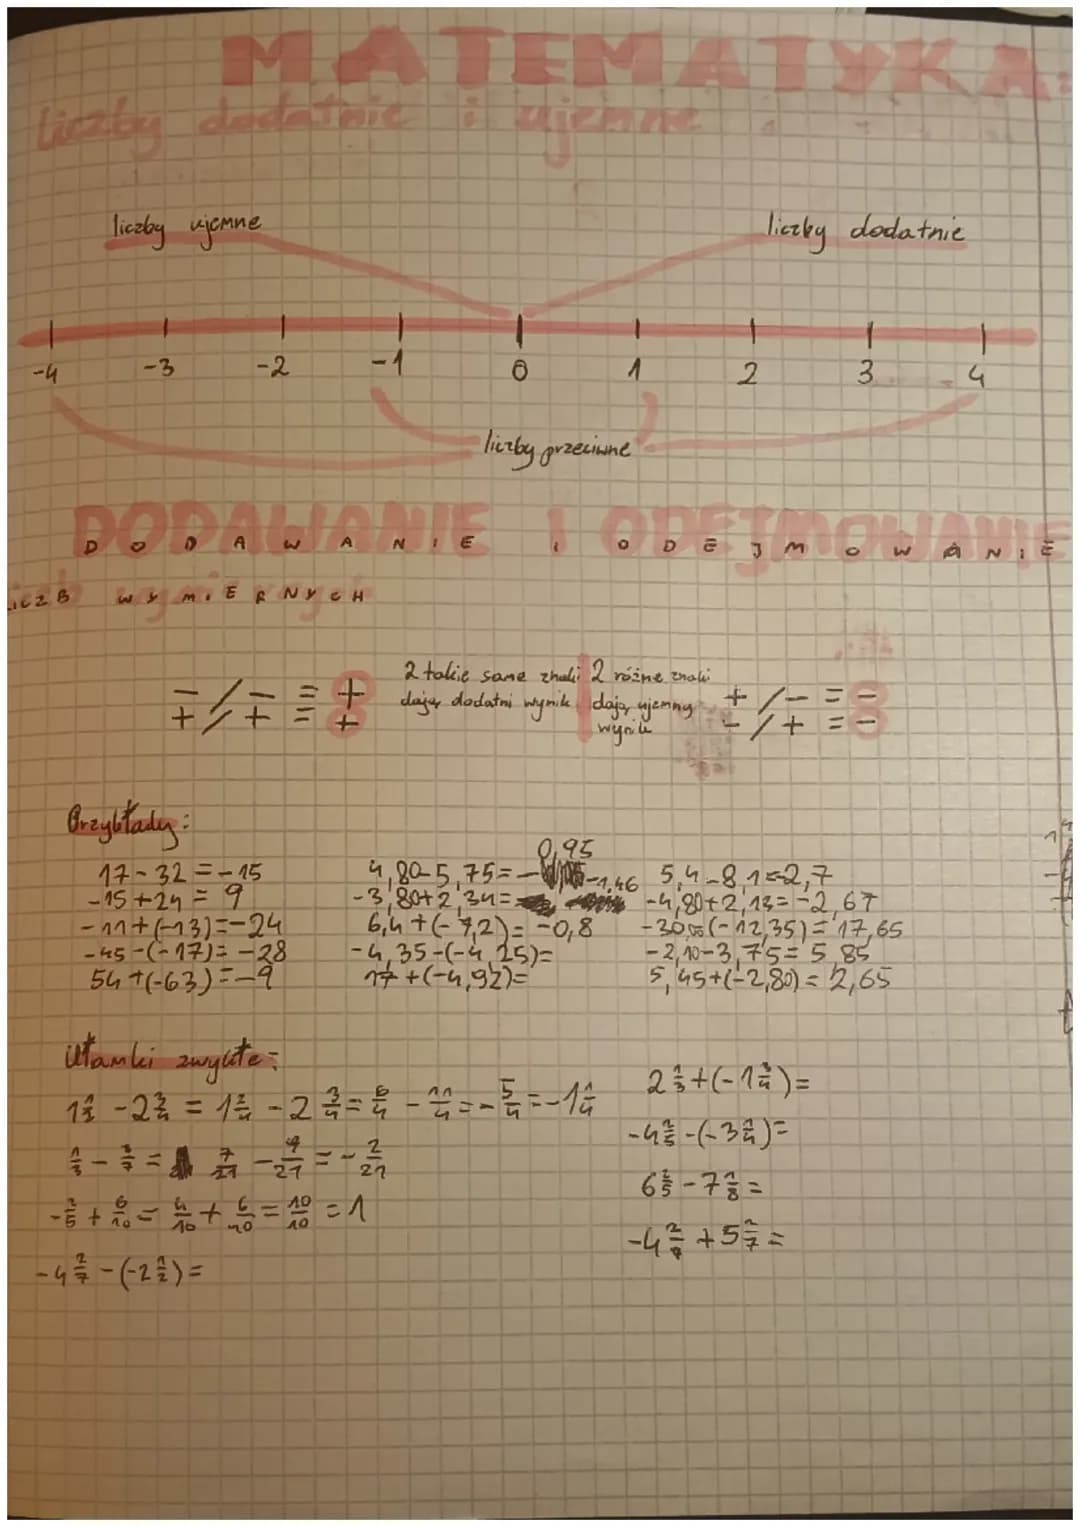 MATEMATYKA:
liczby dodatnie i ujemne
liczby ujemne liczby dodatnie
-4 -3 -2 -1 0 1 2 3 4
liczby przeciwne
DODAWANIE I ODEJMOWANIE
LICZB WYMIERNYCH
2 takie same znaki 2 różne znaki
- / - = + dają dodatni wynik dają ujemny + / - = -
+ / + = + wynik - / + = -
Przykłady:
0,95
17-32=-15 4,80-5,75=- 5,4-8,1=-2,7
-15+24=9 -3,80+2,34= -1,46 -4,80+2,13=-2,67
-11+(-13)=-24 6,4+(-7,2)=-0,8 -30,00(-12,35)=17,65
-45-(-17)=-28 -4,35-(-4,25)= -2,10-3,75=5,85
54+(-63)=-9 17+(-4,92)= 5,45+(-2,80)=2,65
Ułamki zwykłe:
2 1/3+(-1 3/4)=
-2 3/4 = 1 2/4 - 2 3/4 = 6/4 - 11/4 = - 5/4 = -1 1/4
-4 2/5-(-3 1/4)=
1/3 - 3/7 = 7/21 - 9/21 = - 2/21
6 2/5 - 7 1/8 =
-2/5 + 6/10 = 4/10 + 6/10 = 10/10 = 1
+5 2/7 =
-4 2/7 - (-2 1/2) =